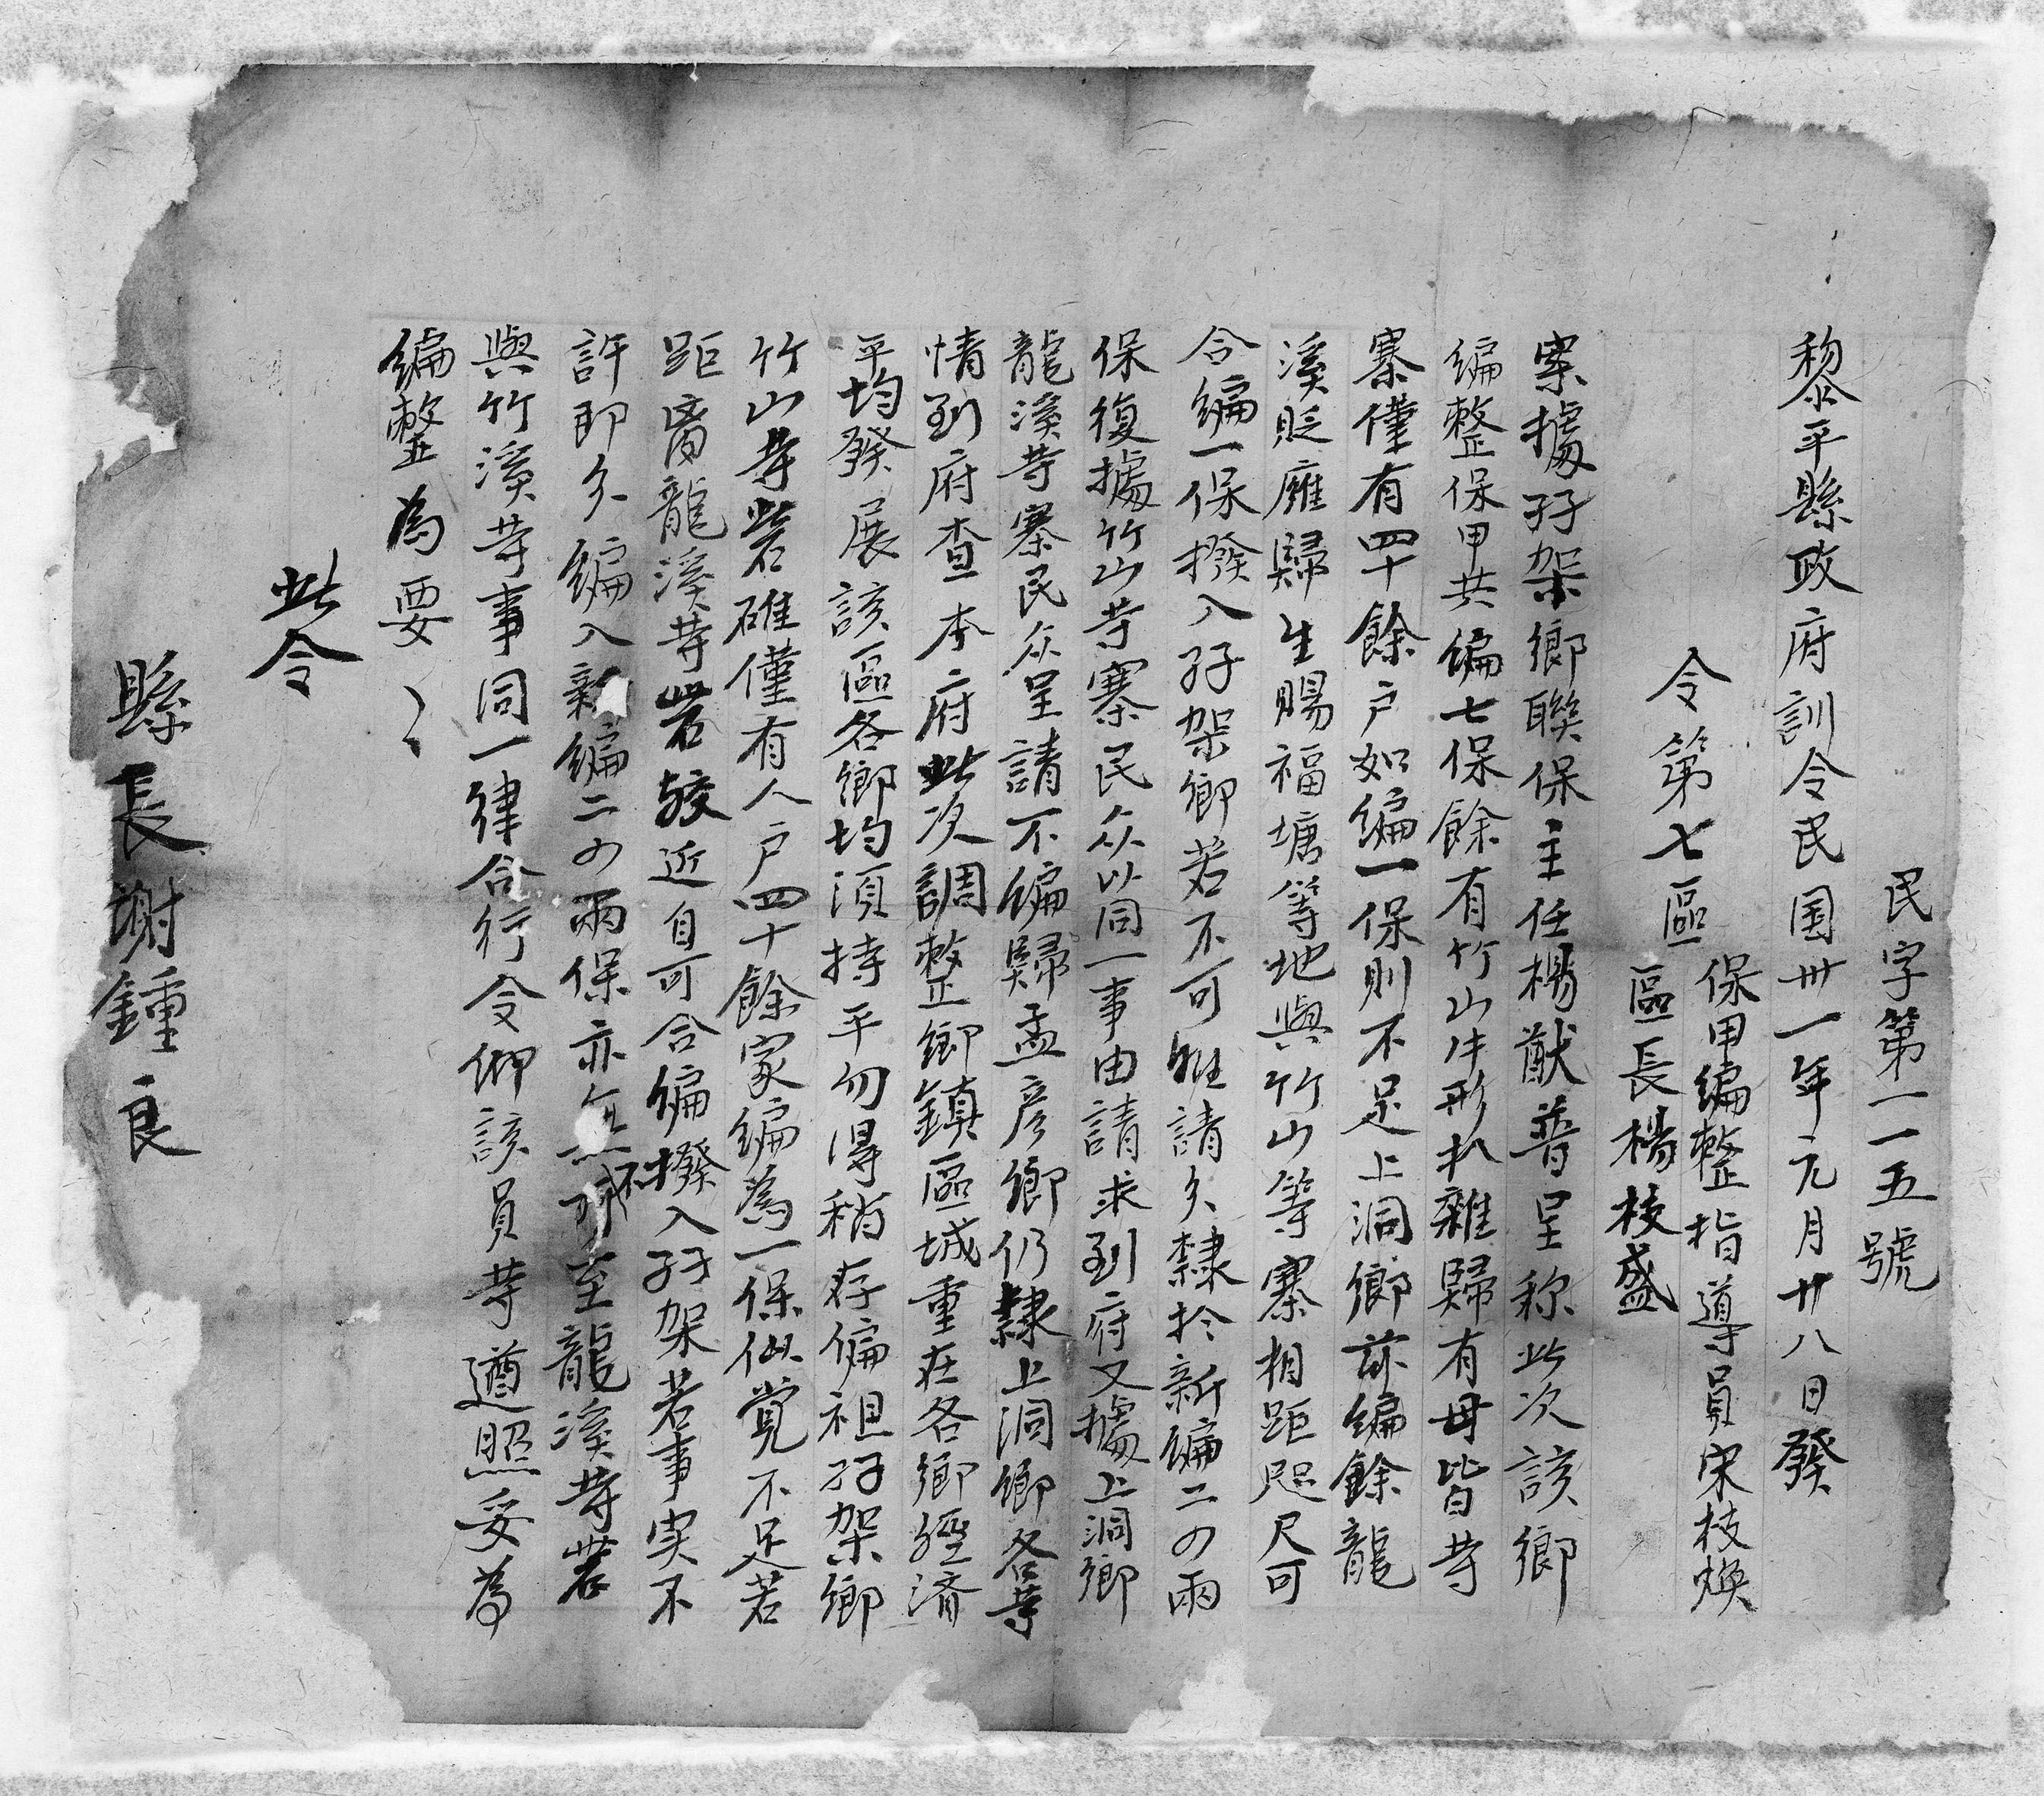 民字第一一五號
黎平縣政府訓令民国卅一年元月廿八日發
令第七區
保甲編整指導員宋枝煥
區長楊枝盛
案據孖架鄉聯保主任楊猷普呈称此次該鄉
編整保甲共編七保餘有竹山牛形扒雜歸有母皆等
寨僅有四十餘户如編一保則不足上洞鄉亦編餘龍
溪貶雇歸生賜福塘等地與竹山等寨相距咫尺可
合編一保撥入孖架鄉若不可能請分隸於新編二の兩
保復據竹山等寨民众以同一事由請求到府又據上洞鄉
龍溪等寨民众呈請不編歸孟彦鄉仍隸上洞鄉各等
情到府查本府此次調整鄉鎮區域重在各鄉經済
平均發展該區各鄉均須持平勿得稍存偏袒孖架鄉
竹山等砦確僅有人户四十餘家編為一保似覚不足若
距離龍溪等砦較近自可合編撥入孖架若事实不
許即分編入新編二の兩保亦無不可至龍溪等砦
與竹溪等事同一律合行令仰該員等遵照妥為
編整為要〻
此令
縣長謝鍾良